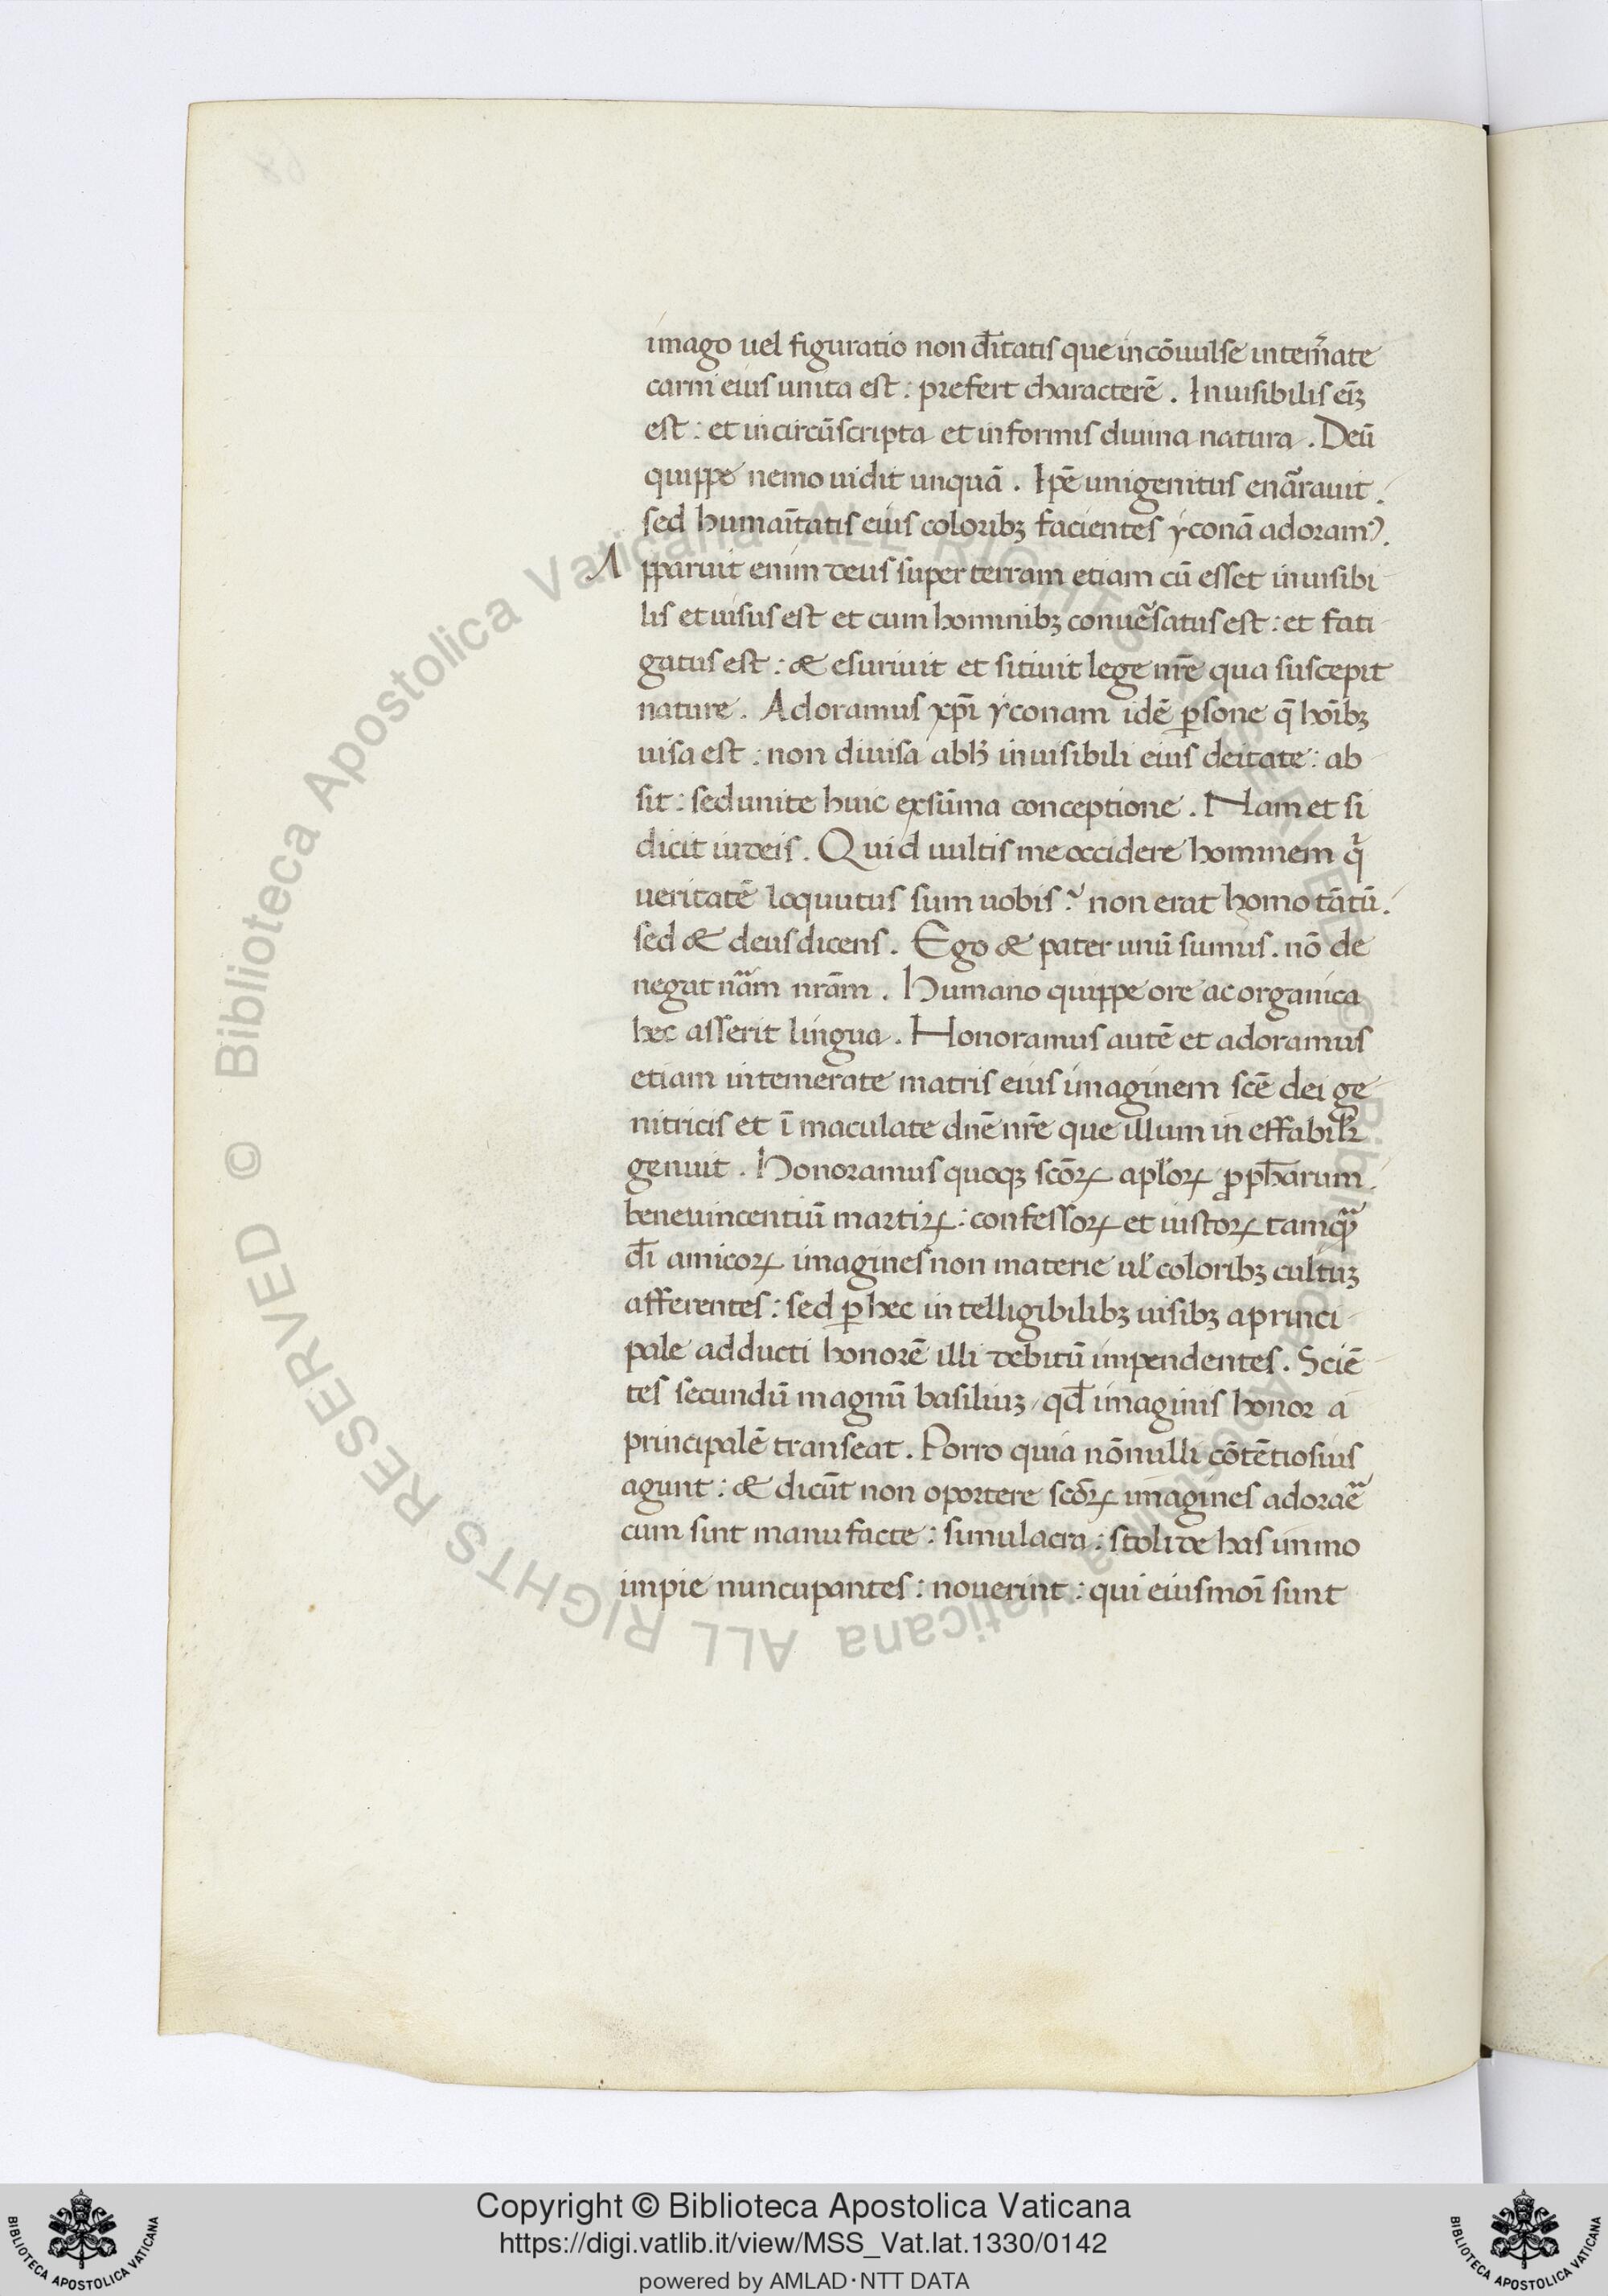 imago uel figuratio non dītatis que incōuulse intem̄ate
carni eius unita est : prefert characterē . Inuisibilis eīꝫ
est : et incircūscripta et informis diuina natura . Deū
quippe nemo uidit unquā . Ip̄e unigenitus enaᷓrauit .
sed humaītatis eius coloribꝫ facientes yconā adoramꝰ .
Apparuit enim deus super terram etiam cū esset inuisibi
lis et uisus est et cum hominibꝫ conuēsatus est : et fati
gatus est : & esuriuit et sitiuit lege nr̄e qua suscepit
nature . Adoramus xp̄i yconam idē ꝑsone q̄ hoībꝫ
uisa est : non diuisa abh̄ inuisibili eius deitate : ab
sit : sed unite huic exsūma conceptione . Nam et si
dicit iudeis . Quid uultis me occidere hominem qͥ
ueritatē loquutus sum uobis ? non erat homo tātū .
sed & deus dicens . Ego & pater unū sumus . nō de
negat nāᷓm nrām . Humano quippe ore ac organica
hec asserit lingua . Honoramus autē et adoramus
etiam intemerate matris eius imaginem scē dei ge
nitricis et ī maculate dn̄e nr̄e que illum in effabilr̄
genuit . Honoramus quoqꝫ scōꝝ apl̄oꝝ ꝓph̄arum .
beneuincentiū martiꝝ : confessoꝝ et iustoꝝ tamqᷓꝫ
d̄i amicoꝝ imagines non materie ul̄ coloribꝫ cultuꝫ
afferentes : sed ꝑ hec intelligibilibꝫ uisibꝫ a princi
pale adducti honorē illi debitū impendentes . Sciē
tes secundū magnū basiliuꝫ / qd̄ imaginis honor a
principalē transeat . Porro quia nōnulli cōtētiosius
agunt : & dicūt non oportere scōꝝ imagines adoraᷓe
cum sint manu facte : simulacra : stolide has immo
impie nuncupantes : nouerint : qui eiusmoī sunt
Copyright © Biblioteca Apostolica Vaticana
https://digi.vatlib.it/view/MSS_Vat.lat.1330/0142
powered by AMLAD·NTT DATA
BIBLIOTECA APOSTOLICA VATICANA
BIBLIOTECA APOSTOLICA VATICANA
© Biblioteca Apostolica Vaticana ALL RIGHTS RESERVED
© Biblioteca Apostolica Vaticana ALL RIGHTS RESERVED